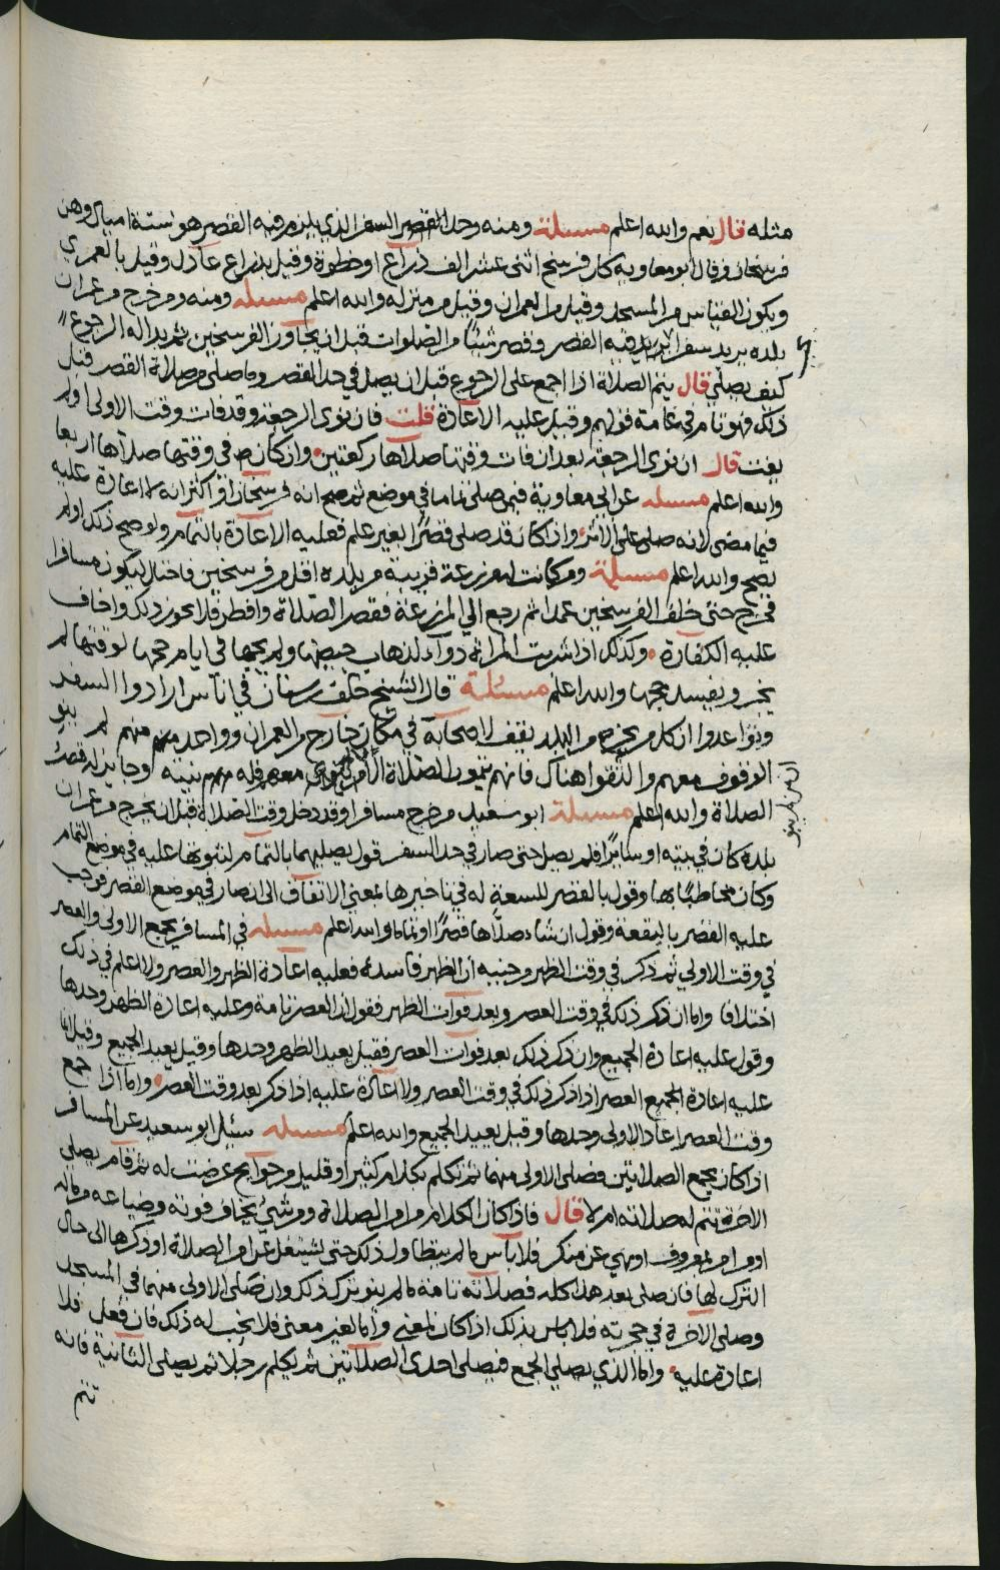 مثله قال نعم والله اعلم مسئلة ومنه وحد القصر السفر الذي يلزم فيه القصر هو ستة اميال وهن
فرسخان وقال ابو معاوية كل فرسخ اثنى عشر الف ذراع او خطوة وقيل بذراع عادل وقيل بالعمري
ويكون القياس من المسجد وقيل من العمران وقيل من منزله والله اعلم مسئله ومنه ومن خرج من عمران
بلده يريد سفرا يريد فيه القصر وقصر شيئا من الصلوات قبل ان يجاوز الفرسخين ثم بدا له الرجوع
كيف يصلي قال يتم الصلاة اذا اجمع على الرجوع قبل ان يصل في حد القصر وما صلى من صلاة القصر قبل
ذلك فهو تام في عامة قولهم وقيل عليه الاعادة قلت فان نوى الرجعة وقد فات وقت الاولى او لم
يفت قال ان نوى الرجعة بعد ان فات وقتها صلاها ركعتين وان كان في وقتها صلاها اربعا
والله اعلم مسئله عن ابي معاوية فيمن صلى تماما في موضع ثم صح انه فرسخان او اكثر انه لا اعادة عليه
فيما مضى لانه صلى على الاثر وان كان قد صلى قصرا بغير علم فعليه الاعادة بالتمام ولو صح ذلك او لم
يصح والله اعلم مسئلة ومن كانت له مزرعة قريبة من بلده اقل من فرسخين فاحتال ليكون مسافرا
فخرج حتى خلف الفرسخين عمدا ثم رجع الى المزرعة فقصر الصلاة وافطر فلا يجوز ذلك واخاف
عليه الكفارة وكذلك اذا شربت المراة دواء لذهاب حيضها ولم يجيها في ايام حجها لوقتها لم
يجز ويفسد حجها والله اعلم مسئلة قال الشيخ خلف بن سنان في اناس ارادوا السفر
وتواعدوا ان كل من يخرج من البلد يقف لاصحابه في مكان خارج من العمران وواحد منهم لم ينو
الوقوف معهم والتقوا هناك فانهم يتمون الصلاة معهم فله نيته وجايز له قصر
الصلاة والله اعلم مسئلة ابو سعيد من خرج مسافرا وقد دخل وقت الصلاة قبل ان يخرج من عمران
بلده كان في بيته او سائرا فلم يصل حتى صار في حد السفر قول يصليها بالتمام لثبوتها عليه في موضع التمام
وكان مخاطبا بها وقول بالقصر للسعة له في تاخيرها بمعنى الاتفاق الى ان صار في موضع القصر فوجب
عليه القصر بالبقعة وقول ان شاء صلاها قصرا او تماما والله اعلم مسئله في المسافر يجمع الاولى والعصر
في وقت الاولى ثم ذكر في وقت الظهر وحينه ان الظهر فاسدة فعليه اعادة الظهر والعصر ولا اعلم في ذلك
اختلافا واما ان ذكر ذلك في وقت العصر وبعد فوات الظهر فقول ان العصر تامة وعليه اعادة الظهر وحدها
وقول عليه اعادة الجميع وان ذكر ذلك بعد فوات العصر فقيل يعيد الظهر وحدها وقيل يعيد الجميع وقيل انما
عليه اعادة الجميع العصر اذا ذكر ذلك في وقت العصر ولا اعادة عليه اذا ذكر بعد وقت العصر واما اذا جمع
وقت العصر اعاد الاولى وحدها وقيل يعيد الجميع والله اعلم مسئله سئل ابو سعيد عن المسافر
اذا كان يجمع الصلاتين فصلى الاولى منهما ثم تكلم بكلام كثير او قليل من حوايج عرضت له ثم قام يصلي
الاخرة تتم له صلاته ام لا قال فاذا كان الكلام من امر الصلاة ومن شيئ يخاف فوته وضياعه من ماله
او من امر بمعروف او نهي عن منكر فلا باس ما لم يتطاول ذلك حتى يشتغل عن امر الصلاة او ذكرها الى حال
الترك لها فان صلى بعد هذا كله فصلاته تامة ما لم ينو ترك ذلك وان صلى الاولى منهما في المسجد
وصلى الاخرة في حجرته فلا باس بذلك اذا كان لمعنى واما لغير معنى فلا يحب له ذلك فان فعل فلا
اعادة عليه واما الذي يصلي الجمع فيصلى احدى الصلاتين ثم يكلم رجلا ثم يصلي الثانية فانه
تتم